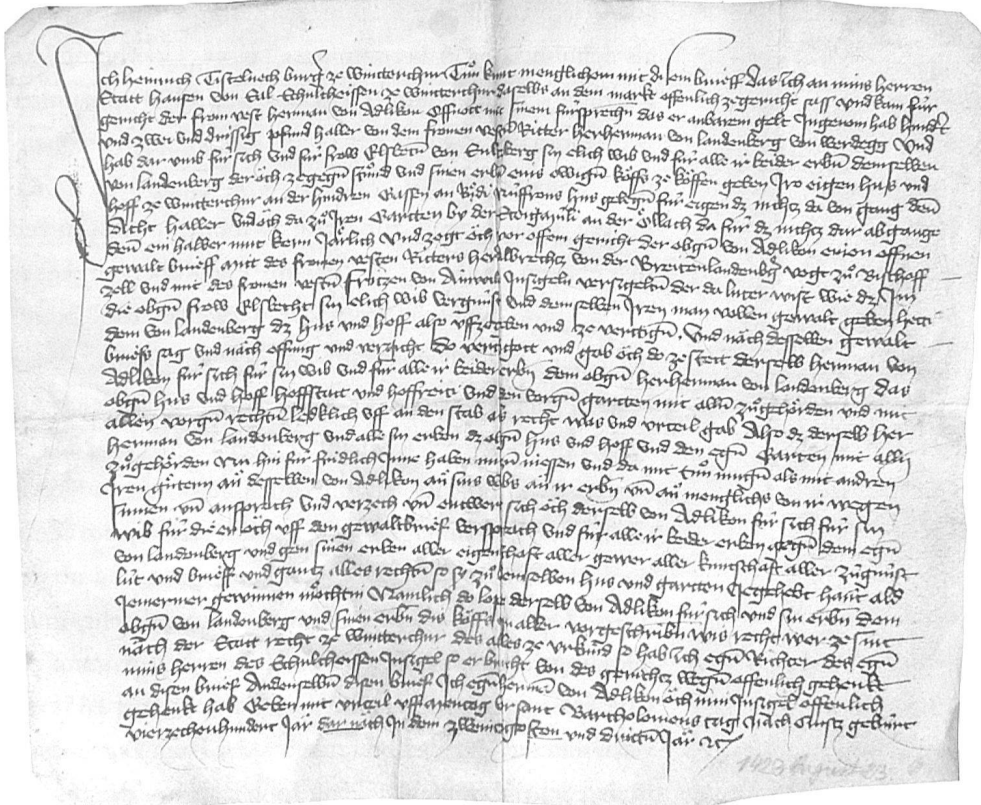 Ich Heinrich Tistelnech burger ze Wintterthur Tuͦn kunt menglichem mit disem brieff das ich an mins herren
Statt Hansen von Sal Schultheissen ze Wintterthur daselbs an dem markt offenlich ze gericht sass und kam fuͥr
gericht der from vest Herman von Adlikon offnott mit sinem fuͥrsprechen das er an barem gelt Ingenom hab hundert
und zwei und drissig pfund haller von dem fromen vesten Ritter her Herman von Landenberg von Werdegg und
hab dar umb fuͥr sich und fuͥr frow Elsbeten von Sultzberg sin elich wib und fuͥr alle ir beider erben demselben
von Landenberg der oͮch ze gegen stuͦnd und sinen erben eins ewigen koͮffs ze koͮffen geben Iro eigen hus und
hoff ze Wintterthur an der hindren Gassen an hus gelegen fuͥr eigen dz nichtz da von gang denn
Acht haller und oͮch da zuͦ Iren Gartten by der an der da fuͥr dz nichtz dar ab gange
denn ein halber mut kern Jaͤrlich und zogt oͮch vor offem gericht der obgen von Adlikon einen offnen
gewalt brieff mit des fromen vesten Ritters her Albrechtz von der Breitenlandenberg vogt zuͦ Bischoff
zell und mit des fromen vesten von Insigeln versigelten der da luter wist wie dz Im
die obgen frow Elsbecht sin elich wib vergunst und demselben Iren man vollen gewalt geben hett
dem von Landenberg dz hus und hoff also uffzegeben und ze vertigen. Und nach desselben gewalt
brieffs sag und nach offnung und vergicht Do vertigott und gab oͮch do ze stett derselb Herman von
Adlikon fuͥr sich fuͥr sin wib und fuͥr alle ir beider erben dem obgen her Herman von Landenberg das
obgen hus und hoff hoffstatt und hoffreiti und den vorgen gartten mit allen zuͦgehoͤrden und mit
allen vorgen rechten ledklich uff an den stab als recht was und urteil gab Also dz derselb her
Herman von Landenberg und alle sin erben dz obgen hus und hoff und den egen Garten mit allen
zuͦgehoͤrden Nu hin fuͥr fridlich Inne haben nutzen niessen und da mit tuͦn mugen als mit andren
Iren guͤtern an desselben von Adlikon an sins wibs an ir erben und an menglichs von ir wegen
sumen und ansprach und verzech und entwert sich oͮch derselb von Adlikon fuͥr sich fuͥr sin
wib fuͥr die er oͮch uff den gewaltbrieff versprach und fuͥr alle ir beider erben gegen dem egen
von Landenberg und gen sinen erben aller eigenschaft aller gewer aller kuntschaft aller zuͥgnust
luͥt und brieff und gantz alles rechten so sy zuͦ demselben hus und gartten Ie gehebt hant ald
Iemermer gewinnen moͤchten Namlich do lopt derselb von Adlikon fuͥr sich und sin erben dem
obgen von Landenberg und sinen erben dis koͮffs in aller vorgeschriben wis recht wer ze sint
nach der Statt recht ze Wintterthur des alles ze urkund so hab ich egen Richter des egen
mins herren des Schultheissen Insigel so er brucht von des gerichtz wegen offenlich gehenkt
an disen brieff An denselben disen brieff Ich egen Herman von Adlikon oͮch min Insigel offenlich
gehenkt hab Geben mit urteil uff mentag vor sant Bartholomeus tag Nach Cristz gebuͥrt
vierzechenhundert Jar dar nach In dem zweintzgosten und dritten Jar ꝛc
1423 August 23.